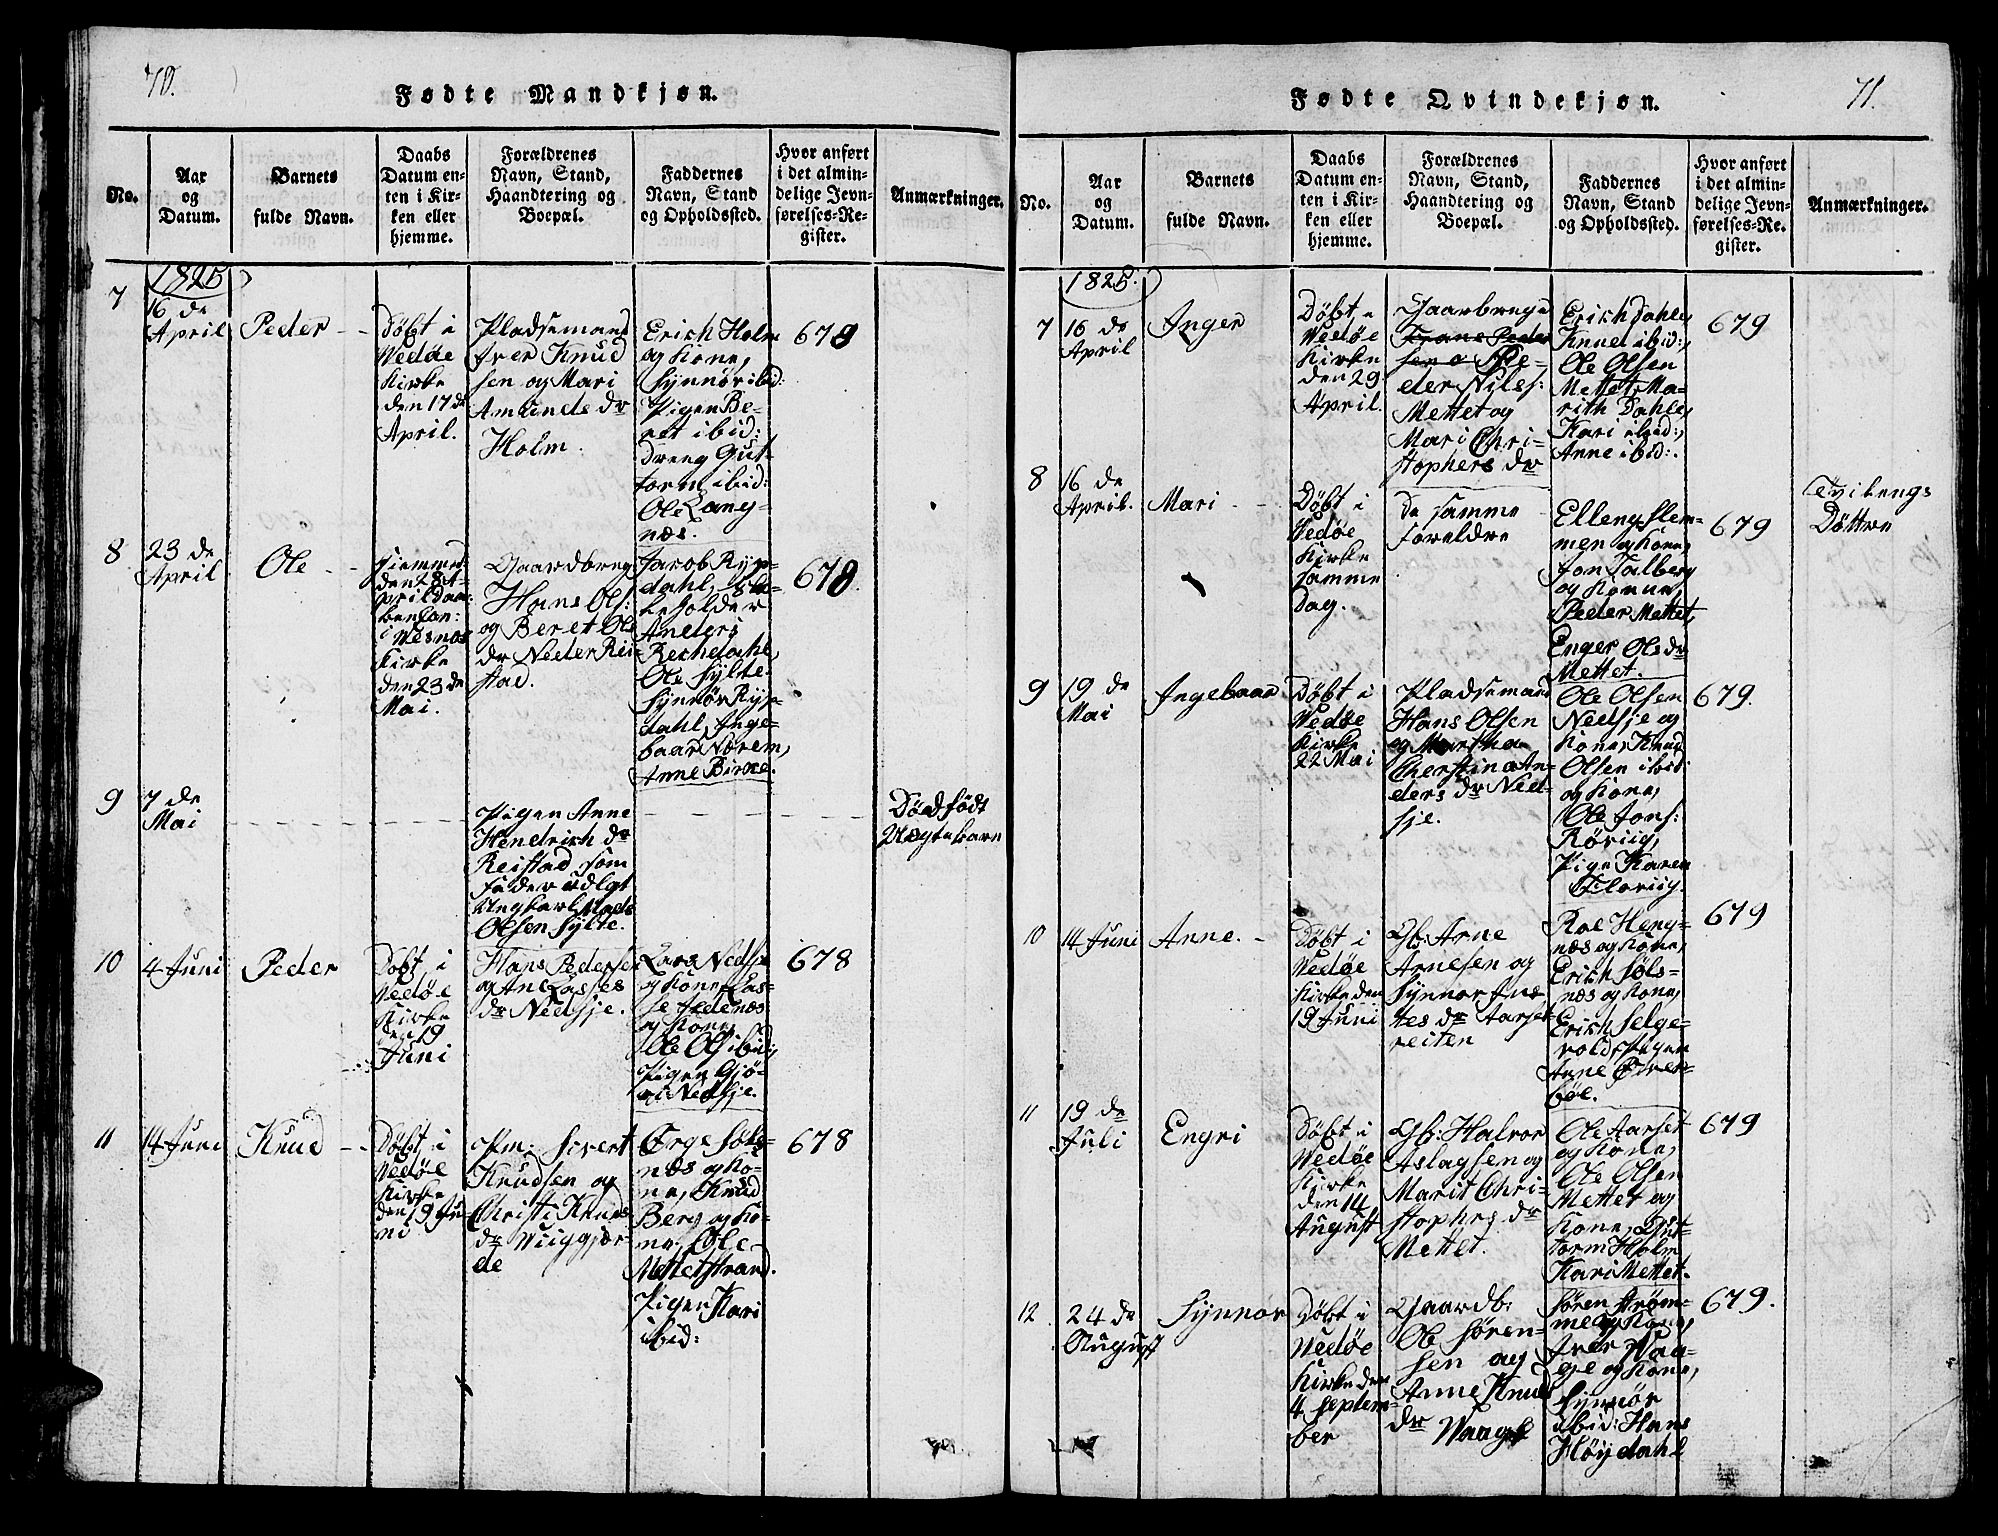 70.
Fødte Mandkjøn.
No.
Aar
og
Datum.
Barnets
fulde Navn.
Daabs
Datum en-
ten i Kir-
ken eller
hjemme.
Forældrenes
Navn, Stand,
Haandtering og
Boepæl.
Faddernes
Navn, Stand
og Opholdssted.
Hvor anført
i det almin-
delige Jevn-
førelses-Re-
gister.
Anmærkninger.
1825
7
16 de
April
Peder
Døbt i
Wedøe
Kirke
den 17 de
April.
Pladsemand
Iver Knud
sen og Mari
Amunds dr
Holm.
Erich Holm
og Kone,
Synnør ibid:
Pigen Be-
ret ibid:
Dreng Gut-
torm ibid:
Ole Lang-
næs.
678
8
23 de
April
Ole
Hjemmed
den 28 A-
pril Daa-
ben Con:
i Wesnæs
Kirke
den 23 de
Mai.
Gaardbrug:
Hans Ols:
og Beret Ole
dr Neder Rei-
stad.
Jacob Ryp-
dahl,
beholder
Anders
Rechdahl,
Ole Sylte
Synnør Ryp-
dahl, Inge-
baar Nærem,
Anne Birke.
678
9
7 de
Mai
Pigen Anne
Hendrich dr
Reistad som
Fader udlgt
Ungkarl Mads
Olsen Sylte.
Dødfødt
Uægtebarn
10
4 Juni
Peder
Døbt i
Wedøe
Kirke
den 19
Juni
Hans Pedersen
og Ane Lasses
dr Nedsje.
Lars Nedsje
og Kone, Las-
se Indenæs
og Kone
Ole Ols ibid;
Pigen Gjø-
ri Nedsje.
678
11
14 Juni
Knud
Døbt i
Wedøe
Kirke
den 19 Ju-
ni
Pm: Sivert
Knudsen og
Christi Knuds
dr Wiiggjær-
de
Ørge Søls-
næs og Ko-
ne, Knud
Berg og Ko-
ne, Ole
Mettetstrand.
Pigen Kari
ibid:
678
71.
Fødte Qvindekjøn.
No.
Aar
og
Datum.
Barnets
fulde Navn.
Daabs
Datum en-
ten i Kir-
ken eller
hjemme.
Forældrenes
Navn, Stand,
Haandtering og
Boepæl.
Faddernes
Navn, Stand
og Opholdssted.
Hvor anført
i det almin-
delige Jevn-
førelses-Re-
gister.
Anmærkninger.
1825.
7
16 de
April
Inger
Døbt i
Wedøe
Kirke
den 29
April.
Gaarbruge
Trone Peder
sen o Pe-
der Nils:
Mettet og
Mari Chri-
stophers dr
Erich Dahle,
Knud ibid:,
Ole Olsen
Mettet, Ma-
rith Dahle,
Kari ibid:,
Anne ibid:.
679
8
16 de
April.
Mari
Døbt i
Wedøe
Kirke
samme
Dag.
De samme
Foreldre
Elleng Slem-
men og Kone,
Jon Talberg
og Konne,
Peder Mettet,
Enger Ols dr
Mettet.
679
Tvilengs
Døttre
9
19 de
Mai
Ingebaar
Døbt i
Wedøe
Kirke
22 Mai
Pladsemand
Hans Olsen
og Martha
Cherstina An-
ders dr Ned-
sje.
Ole Olsen
Nedsje og
Kone, Knud
Olsen ibid:
og Kone,
Ole Jons:
Rørvig,
Pige Karen
Flovig.
679.
10
14 Juni
Anne.
Døbt i
Wedøe
Kirke den
19 Juni
Gb: Arne
Arnesen og
Synnør Ane
tes dr Aarset-
reiten
Roe Heng-
næs og Kone,
Erich Søls-
næs og Kone,
Erich Selge-
vold, Pigen
Anne Over-
bøe.
679
11
19 de
Juli
Engri
Døbt i
Wedøe
Kirke
den 14
August
Gb: Halvor
Aslagsen og
Marit Chri-
stophrs dr
Mettet.
Ole Aarset
og Kone,
Ole Olsen
Mettet og
Kone, Gut-
torm Holm,
Kari Mettet.
679
12
24 de
August
Synnør
Døbt i
Wedøe
Kirke den
4 Septem-
ber
Gaardb:
Ole Søren-
sen og
Anne Knuds
dr Waage
Søren Strøm-
me og Kone,
Iver Waa-
ge og Kone,
Synnør
ibid: Hans
Høydahl
679.